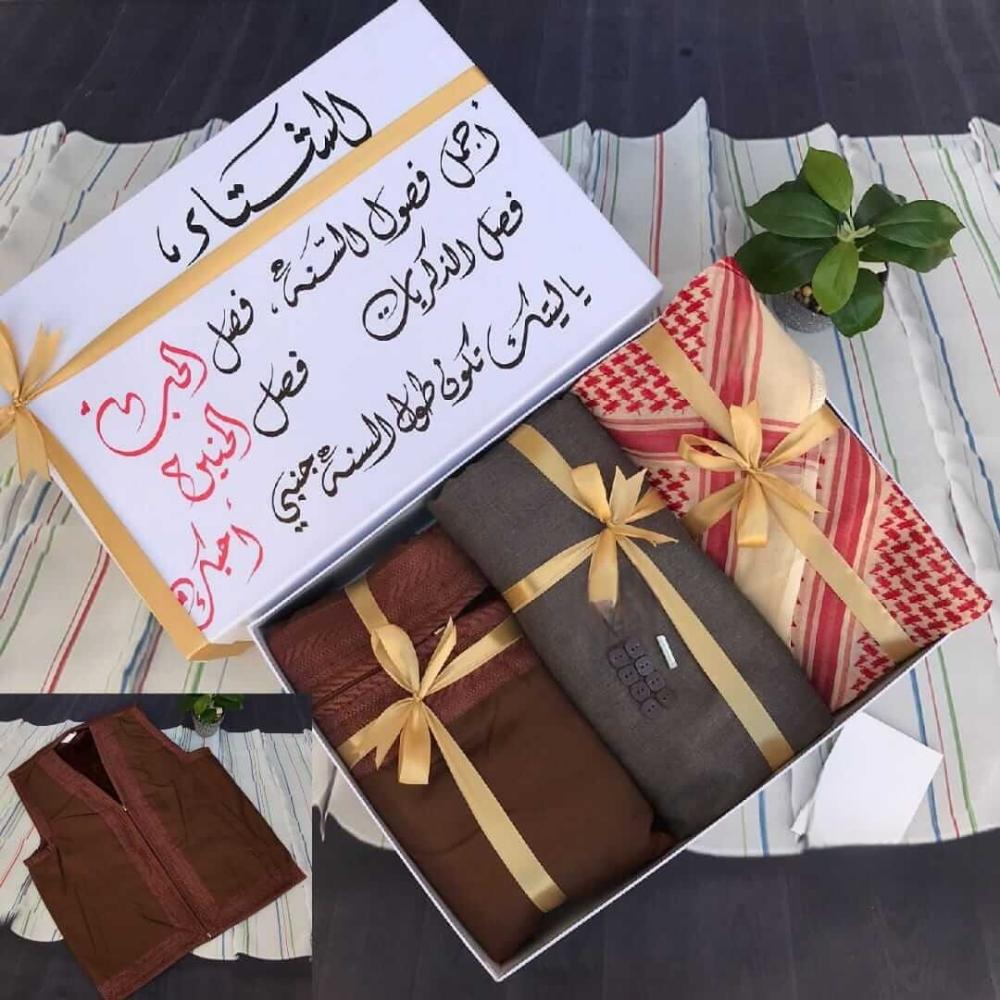 الشتاء
أجمل فصول السَّنة، فصل الحب
فصل الذكريات فصل الحنين
ياليتك تكون طول السنة جنبي احبك